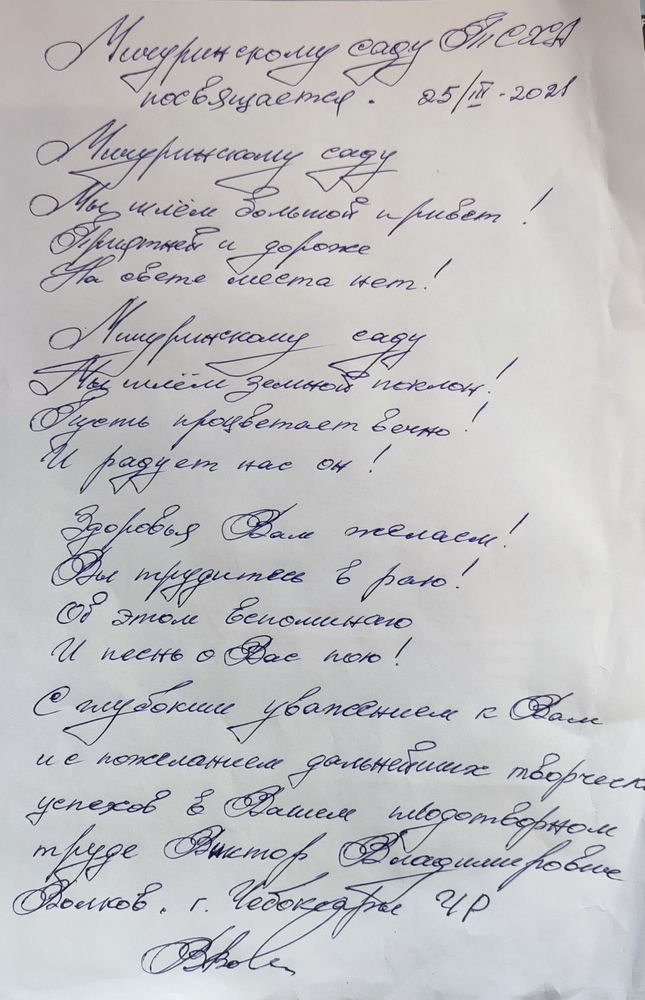 Мичуринскому саду ТСХА
посвящается. 25/III-2021
Мичуринскому саду
Мы шлём большой привет!
Приятней и дороже
На свете места нет!
Мичуринскому саду
Мы шлём земной поклон!
Пусть процветает вечно!
И радует нас он!
Здоровья Вам желаем!
Вы трудитесь в раю!
Об этом вспоминаю
И песнь о Вас пою!
С глубоким уважением к Вам
и с пожеланием дальнейших творческ
успехов в Вашем плодотворном
труде Виктор Владимирович
Волков. г. Чебоксары ЧР